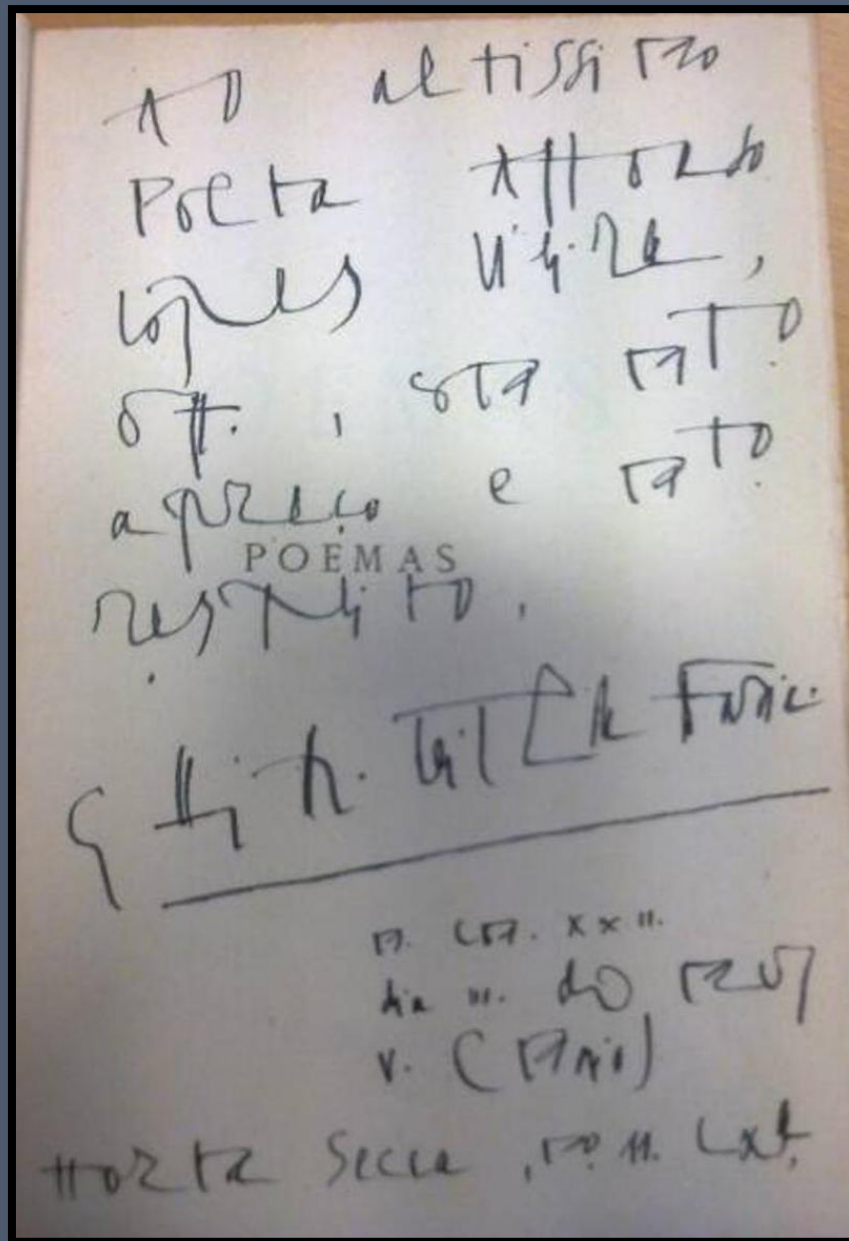 AO altissimo
Poeta Affonso
Lopes Vieira,
off., sta mto.
apreço e mto.
POEMAS
respeito.
M. CM. XXII.
dia III. do mez
V. (Maio)
Horta Secca